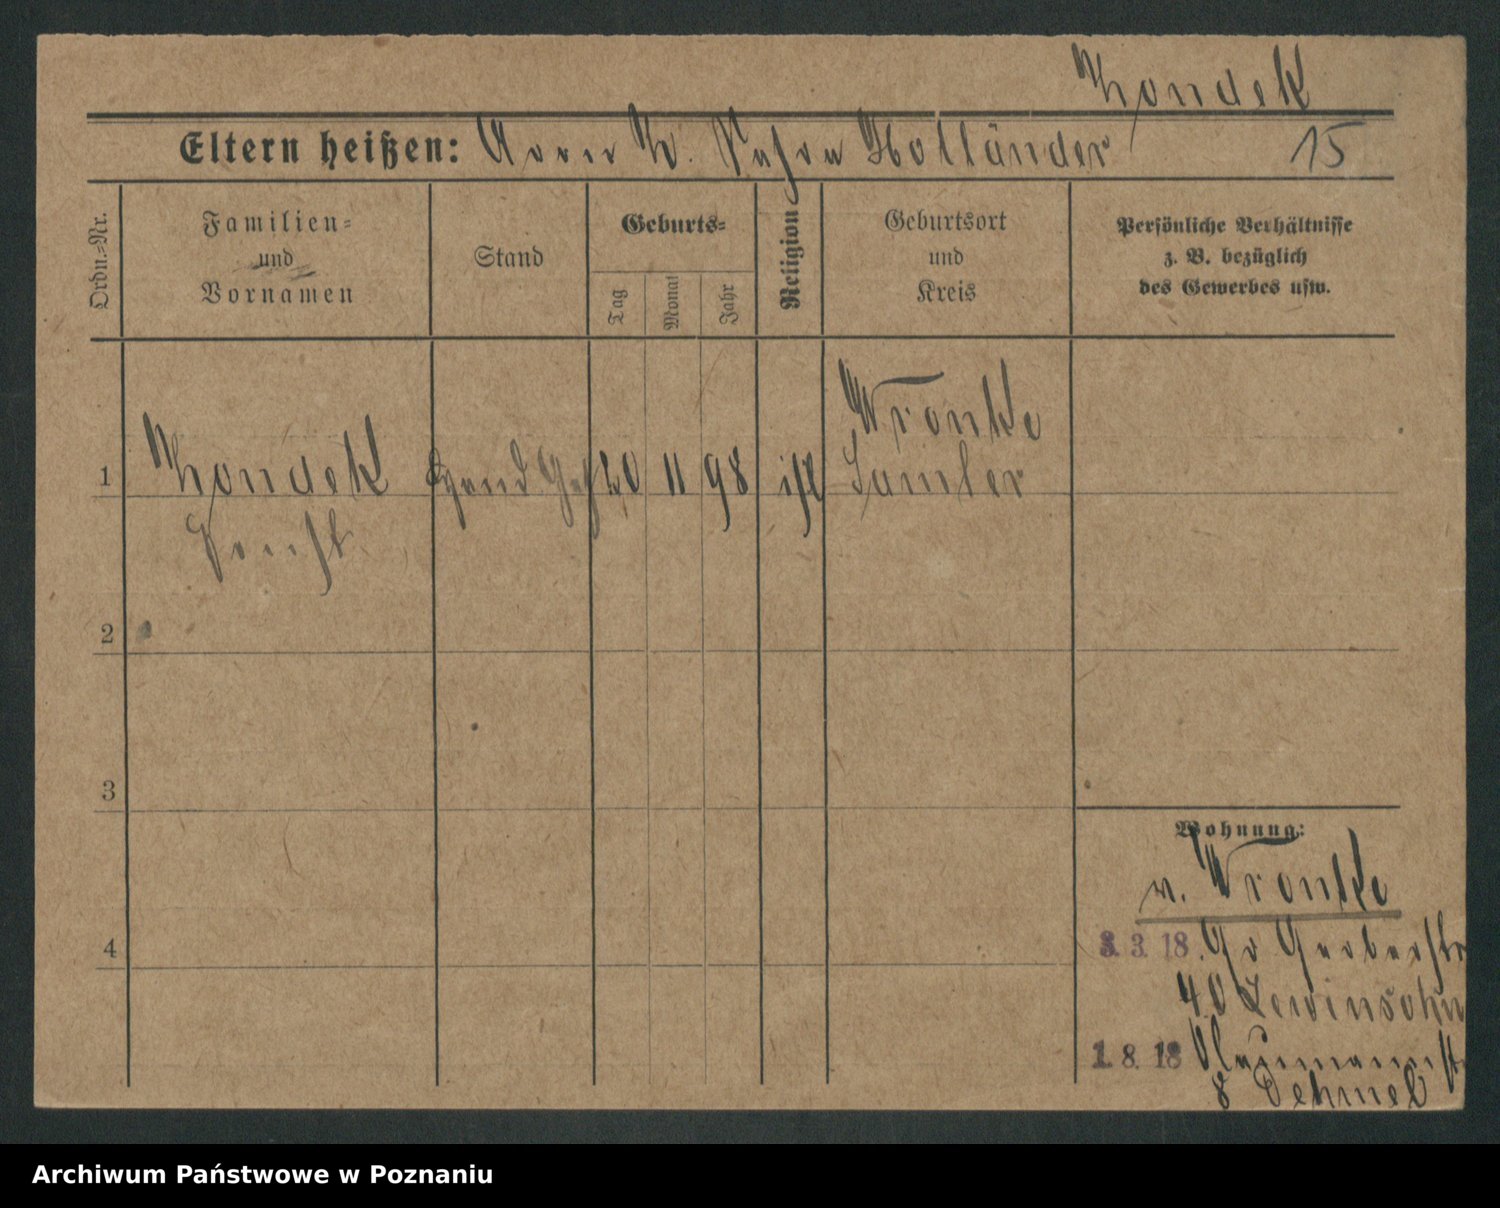 Zondek
Eltern heißen: Aron Z. Holländer 15
Ordn.-Nr.
Familien-
und
Vornamen
Stand
Geburts-
Tag
Monat
Jahr
Religion
Geburtsort
und
Kreis
Persönliche Verhältnisse
z. B. bezüglich
des Gewerbes usw.
Wronke
1 Zondek 11 98 isr Samter
2
3
4
Wohnung:
v. Wronke
3. 3. 18. Gr Gerberstr
40 Lewinsohn
1. 8. 18 Naumannstr
8 Dehmel
Archiwum Państwowe w Poznaniu